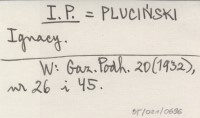 I.P. = PLUCIŃSKI
Ignacy.
W: Gaz. Podh. 20(1932),
nr 26 i 45.